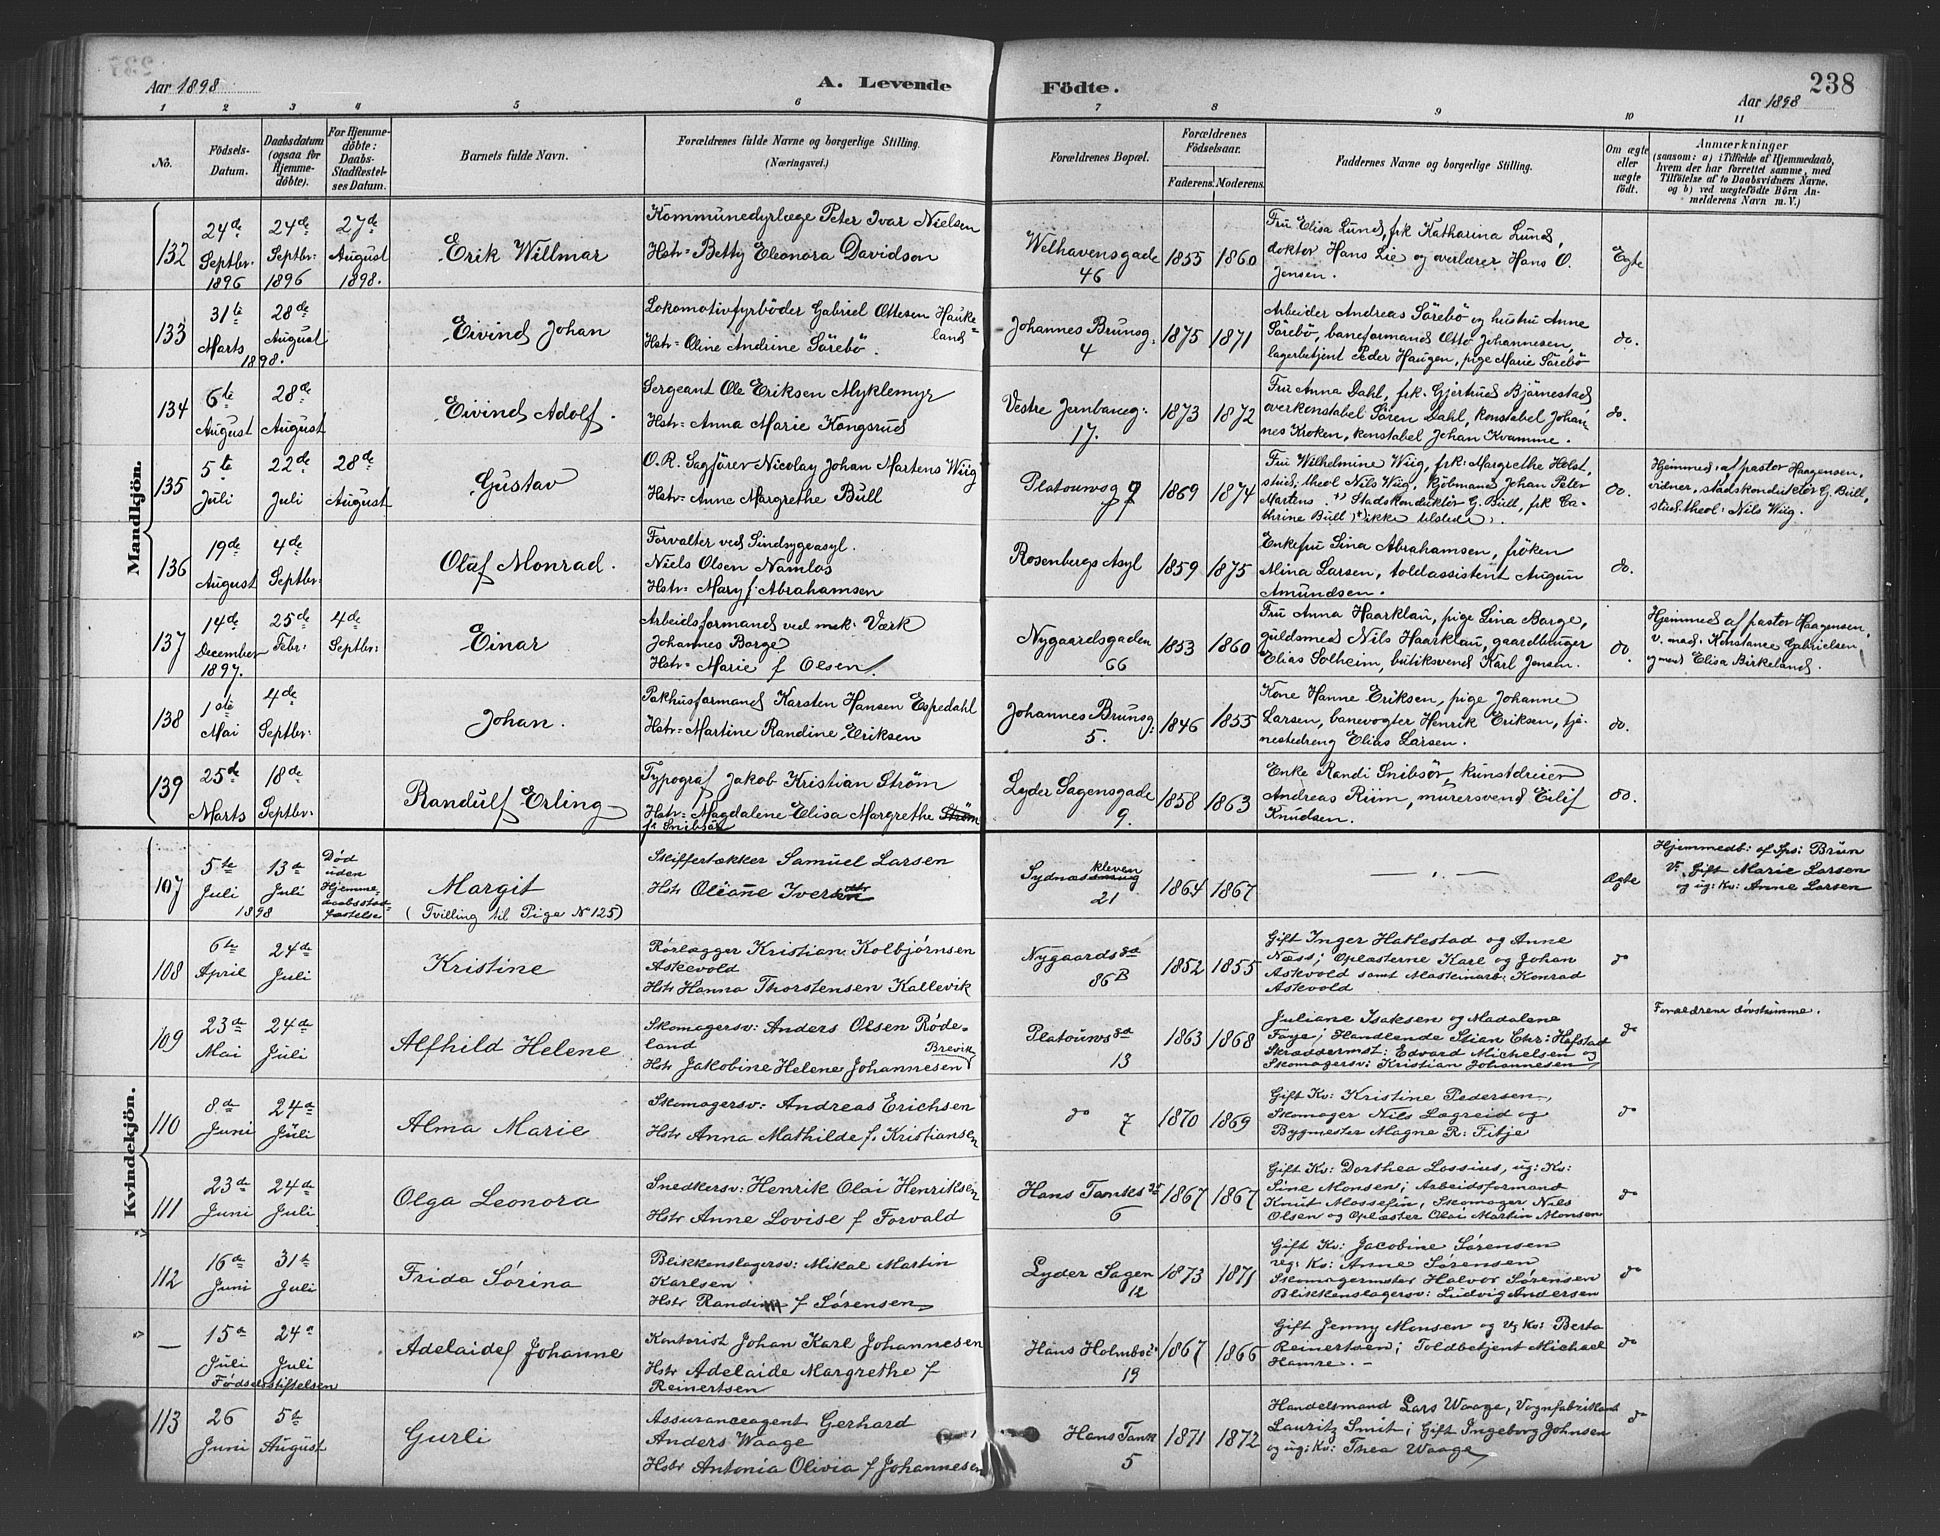 Aar 1898
A. Levende Födte.
238
Aar 1898
1 2 3 4 5 6 7 8 9 10 11
No.
Födsels-Datum.
Daabsdatum (ogsaa for Hjemme-döbte).
For Hjemme-döbte: Daabs-Stadfæstel-ses Datum.
Barnets fulde Navn.
Forældrenes fulde Navne og borgerlige Stilling. (Næringsvei.)
Forældrenes Bopæl.
Forældrenes Födselsaar.
Faderens. Moderens.
Faddernes Navne og borgerlige Stilling.
Om ægte eller uægte födt.
Anmærkninger
(saasom: a) i Tilfælde af Hjemmedaab, hvem der har forrettet samme, med Tilföielse af to Daabsvidners Navne, og b) ved uægtefödte Börn An-melderens Navn m. V.)
Mandkjön.
132
24de Septbr. 1896
24de Septbr: 1896
27de August 1898.
Erik Willmar
Kommunedyrlæge Peter Ivar Nielsen
Hstr: Betty Eleonora Davidson
Welhavensgade 46
1855 1860
Fru Elisa Lund, frk Katharina Lund,
doktor Hans Lie og overlærer Hans O.
Jensen.
Egte
133
31te Marts 1898.
28de August
Eivind Johan
Lokomotivfyrböder Gabriel Ottesen Haukeland
Hstr: Oline Andrine Sörebö.
Johannes Brunsg: 4
1875 1871
Arbeider Andreas Sörebö og hustru Anne
Sörebö, baneformand Otto Johannesen,
lagerbetjent Peder Haugen, pige Marie Sörebö
do.
134
6te August
28de August
Eivind Adolf.
Sergeant Ole Eriksen Myklemyr
Hstr: Anna Marie Kongsrud
Vestre Jernbaneg: 17.
1873 1872
Fru Anna Dahl, frk. Gjertrud Bjärnestad
overkonstabel Sören Dahl, konstabel Johan-
nes Kroken, konstabel Johan Kvamme.
do.
135
5te Juli
22de Juli
28de August
Gustav
O.R. Sagförer Nicolay Johan Martens Wiig
Hstr: Anne Margrethe Bull
Platousg 7
1869 1874
Fru Wilhelmine Wiig, frk: Margrethe Holst,
stud: theol Nils Wiig, kjöbmand Johan Peter
Martens. Stadskonduktör G. Bull, frk Ca-
thrine Bull ikke tilstede.
do.
Hjemmed: af pastor Haagensen.
vidner, stadskonduktör G. Bull,
stud: theol: Nils Wiig.
136
19de August
4de Septbr:
Olaf Monrad.
Forvalter ved Sindsygeasyl.
Niels Olsen Namlos
Hstr: Mary f. Abrahamsen
Rosenbergs Asyl
1859 1875
Enkefru Sina Abrahamsen, fröken
Mina Larsen, toldassistent Augun
Amundsen.
do.
137
14de December 1897.
25de Febr:
4de Septbr:
Einar
Arbeidsformand ved mek: Værk
Johannes Borge
Hstr: Marie f Olsen
Nygaardsgaden 66
1853 1860
Fru Anna Haarklau, pige Lina Borge,
guldsmed Nils Haarklau, gaardbruger
Elias Solheim, butiksvend Karl Jensen.
do.
Hjemmed af pastor Haagensen.
v. mad: Konstance Gabrielsen
og med Elisa Birkeland.
138
1ste Mai
4de Septbr:
Johan.
Pakhusformand Karsten Hansen Espedahl
Hstr: Martine Randine Eriksen
Johannes Brunsg: 5.
1846 1855
Kone Hanne Eriksen, pige Johanne
Larsen, banevogter Henrik Eriksen, tje-
nestedreng Elias Larsen.
do.
139
25de Marts
18de Septbr:
Randulf Erling
Typograf Jakob Kristian Ström
Hstr: Magdalene Elisa Margrethe Ström
f. Snibsör
Lyder Sagensgade 9.
1858 1863
Enke Randi Snibsör, kunstdreier
Andreas Riim, murersvend Eilif
Knudsen.
do.
Kvindekjön.
107
5te Juli 1898
13de Juli
Död uden Hjemme-daabsstad-fæstelse
Margit
(Tvilling til Pige No 125)
Skiffertækker Samuel Larsen
Hstr Oliane Iversdtr
Sydneskleven 21
1864 1867
— " —
Ægte
Hjemmedb: af Sps: Brun
V. Gift Marie Larsen
og ug: Kv: Anne Larsen
108
6te April
24de Juli
Kristine
Rörlægger Kristian Kolbjørnsen
Askevold
Hstr Hanna Thorstensen Kallevik
Nygaardsgd 86B
1852 1855
Gift Inger Hatlestad og Anne
Næss; Oplæsterne Karl og Johan
Askvold samt Maskinarb: Konrad
Askvold
do
109
23de Mai
24de Juli
Alfhild Helene
Skomagersv: Anders Olsen Røde-
land
Brevik
Hstr Jakobine Helene Johannesen
Platousgd 13
1863 1868
Juliane Isaksen og Madalene
Faye; Handlende Stian Chr: Hafstad
Skræddermst: Edvard Michelsen og
Skomagersv: Kristian Johannesen
do
Forældrene døvstumme.
110
8de Juni
24de Juli
Alma Marie
Skomagersv: Andreas Erichsen
Hstr Anna Mathilde f. Kristiansen
do 7
1870 1869
Gift Kv: Kristine Pedersen,
Skomager Nils Lægreid og
Bygmester Magne R: Fitje
do
111
23de Juni
24de Juli
Olga Leonora
Snedkersv: Henrik Olai Henriksen
Hstr Anne Lovise f Forvald
Hans Tanks gt 6
1867 1867
Gift Kv: Dorthea Lossius, ug: Kv:
Sine Monsen; Arbeidsformand
Knut Mossefin, Skomager Nils
Olsen og Oplæster Olai Martin Monsen
do
112
16de Juni
31te Juli
Frida Sørina
Blikkenslagersv: Mikal Martin
Karlsen
Hstr Randi f Sørensen
Lyder Sagen 12
1873 1871
Gift Kv: Jacobine Sørensen
ug: Kv: Anne Sørensen
Skomagermster Halvor Sørensen
Blikkenslagersv: Ludvig Andersen
do
—
15de Juli
24de Juli
Fødselsstiftelsen
Adelaide Johanne
Kontorist Johan Karl Johannesen
Hstr Adelaide Margrethe f
Reinertsen
Hans Holmboe 19
1867 1866
Gift Jenny Monsen og Ug Kv: Berta
Reinertsen; Toldbetjent Michael
Hamre. —
do
113
26 Juni
5te August
Gurli
Assuranceagent Gerhard
Anders Waage
Hstr Antonia Olivia f Johannesen
Hans Tank 5
1871 1872
Handelsmand Lars Waage, Vognfabrikant
Lauritz Smit; Gift Ingeborg Johnsen
og ug: Kv: Thea Waage
do